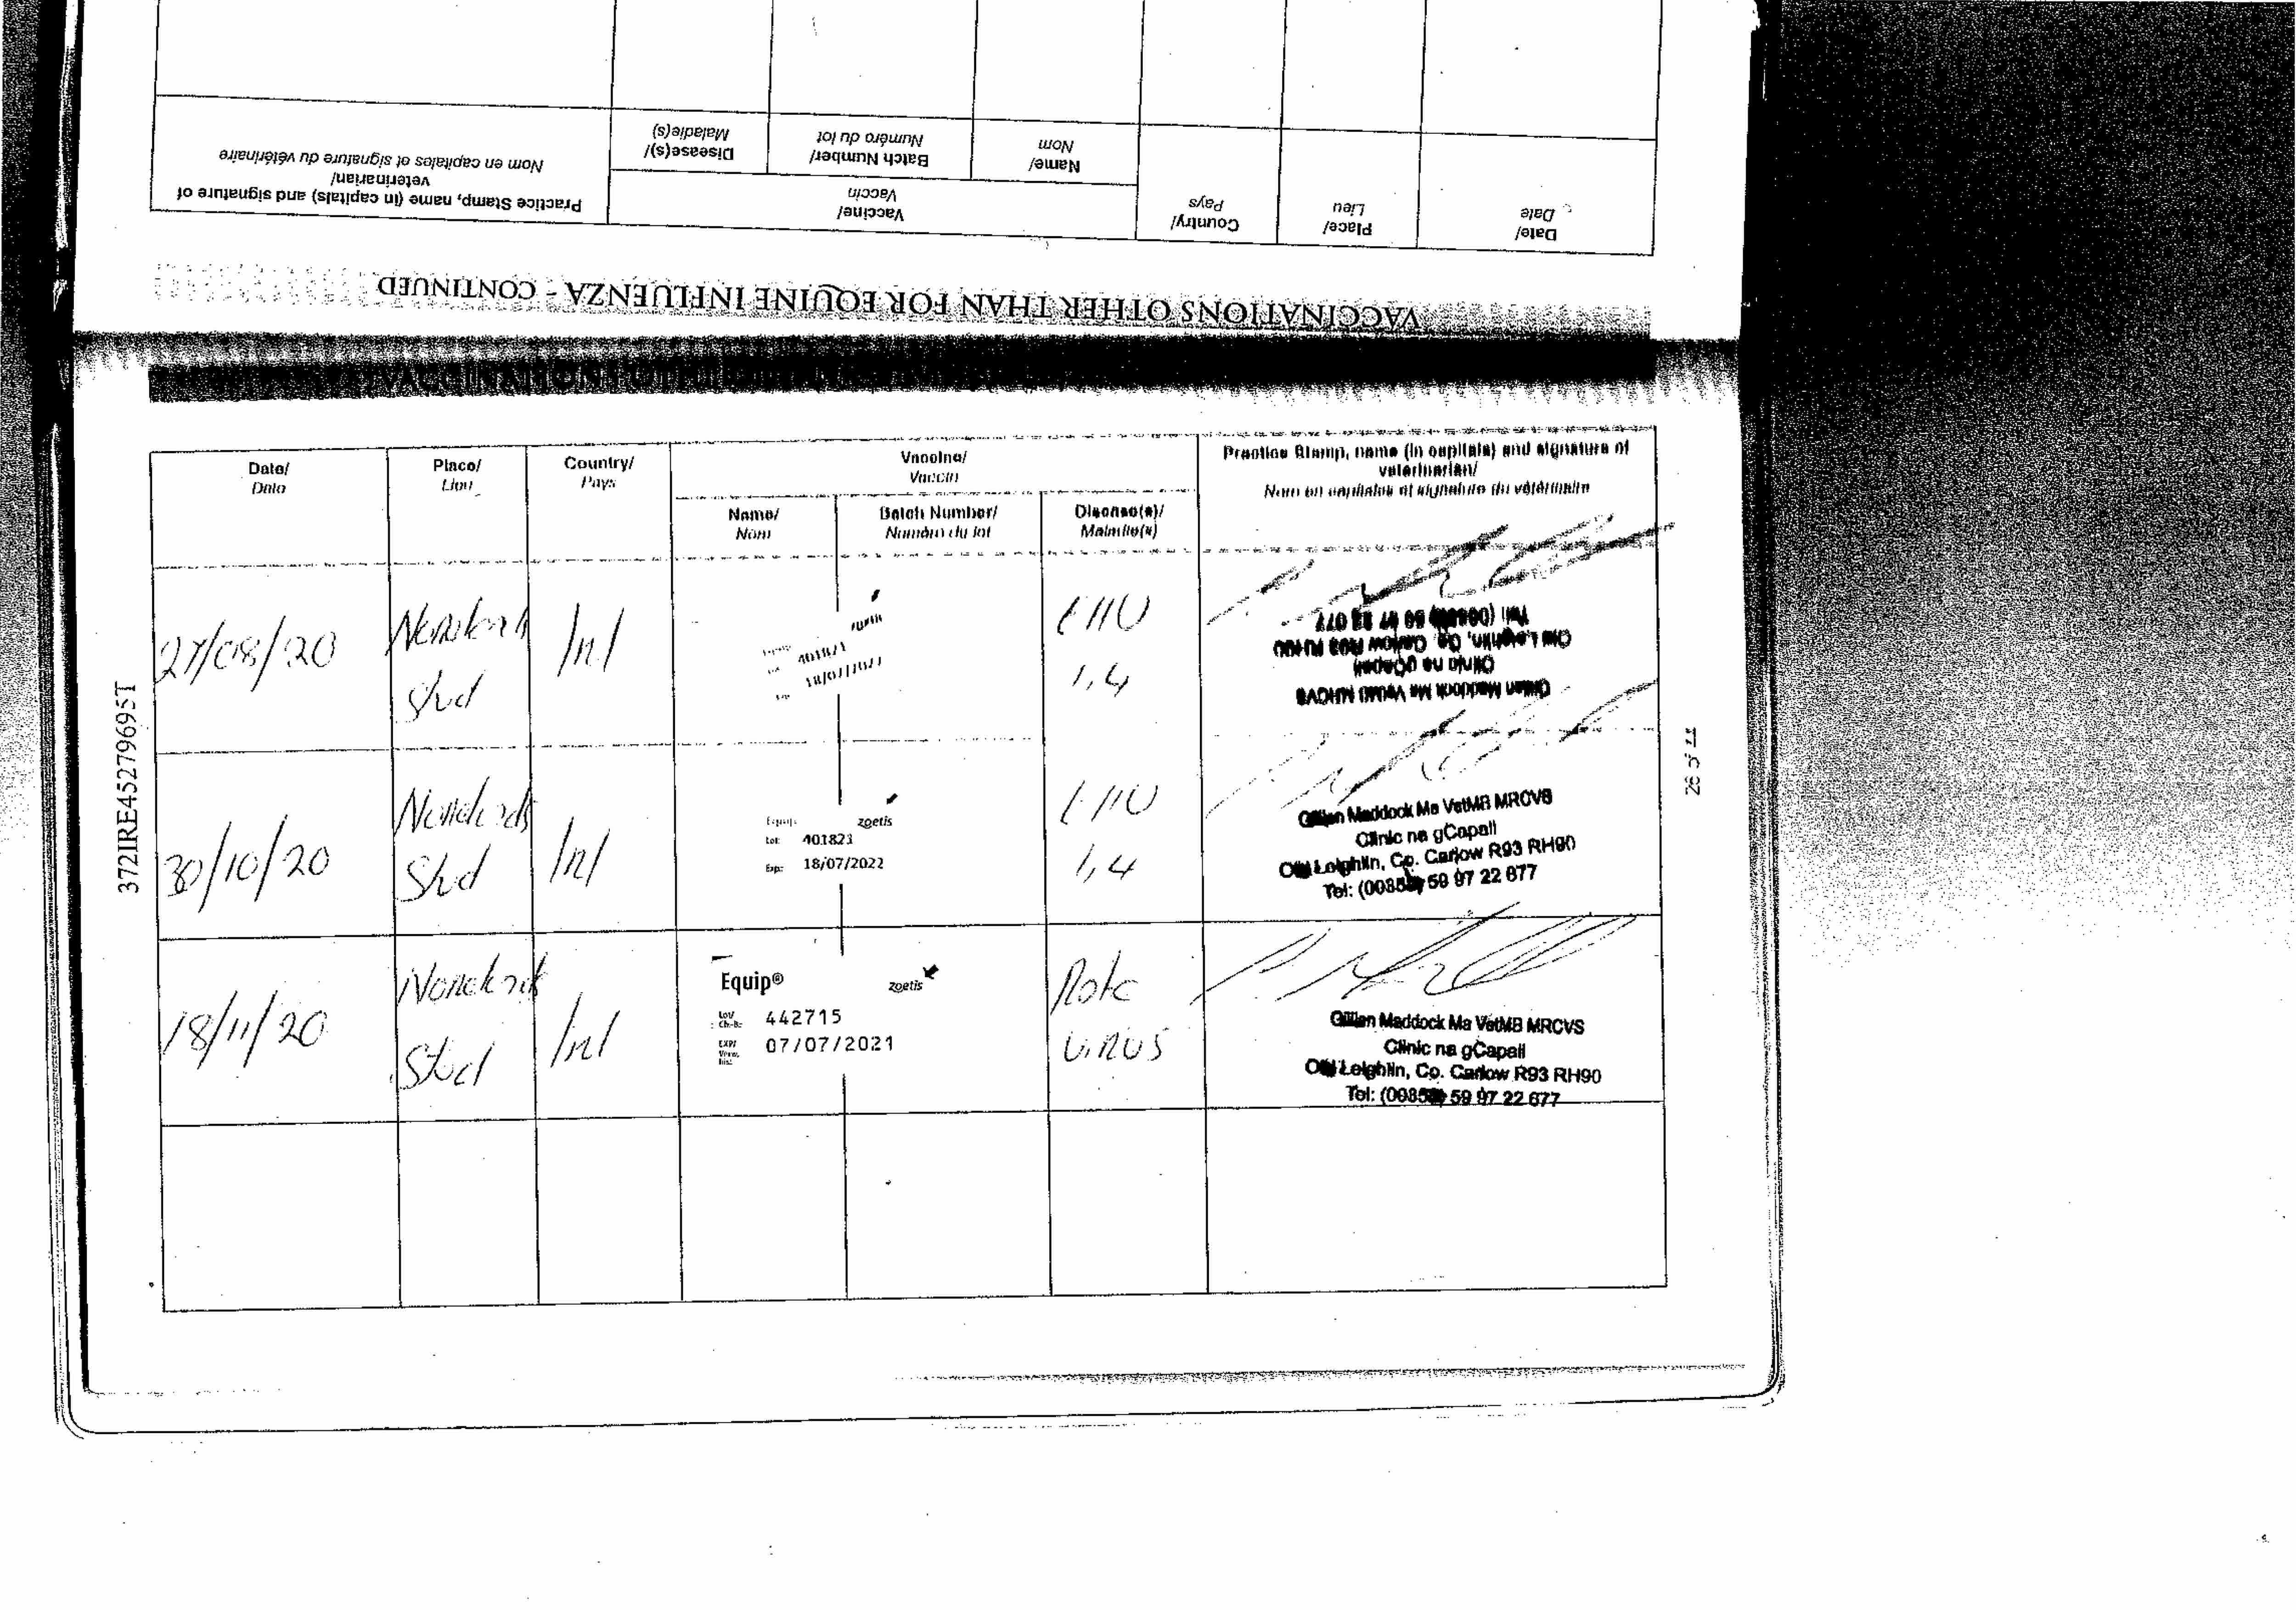 VACCINATIONS OTHER THAN FOR EQUINE INFLUENZA - CONTINUED
Date/
Date
Place/
Lieu
Country/
Pays
Vaccine/
Vaccin
Name/
Nom
Batch Number/
Numéro du lot
Disease(s)/
Maladie(s)
Practice Stamp, name (in capitals) and signature of
veterinarian/
Nom en capitales et signature du vétérinaire
Date/
Date
Place/
Lieu
Country/
Pays
Vaccine/
Vaccin
Name/
Nom
Batch Number/
Numéro du lot
Disease(s)/
Maladie(s)
Practice Stamp, name (in capitals) and signature of
veterinarian/
Nom en capitales et signature du vétérinaire
27/08/20
Stud
Irl
EHV
1,4
Gillian Maddock Ma VetMB MRCVS
Clinic na gCapall
Old Leighlin, Co. Carlow R93 RH90
30/10/20
Stud
Irl
Equip
zoetis
Lot: 401823
Exp: 18/07/2022
EHV
1,4
Gillian Maddock Ma VetMB MRCVS
Clinic na gCapall
Old Leighlin, Co. Carlow R93 RH90
Tel: 59 97 22 677
18/11/20
Stud
Irl
Equip®
zoetis
Lot/
Ch.-B.: 442715
EXP/
07/07/2021
Rota
Virus
Gillian Maddock Ma VetMB MRCVS
Clinic na gCapall
Old Leighlin, Co. Carlow R93 RH90
Tel: 59 97 22 677
372IRE45279695T